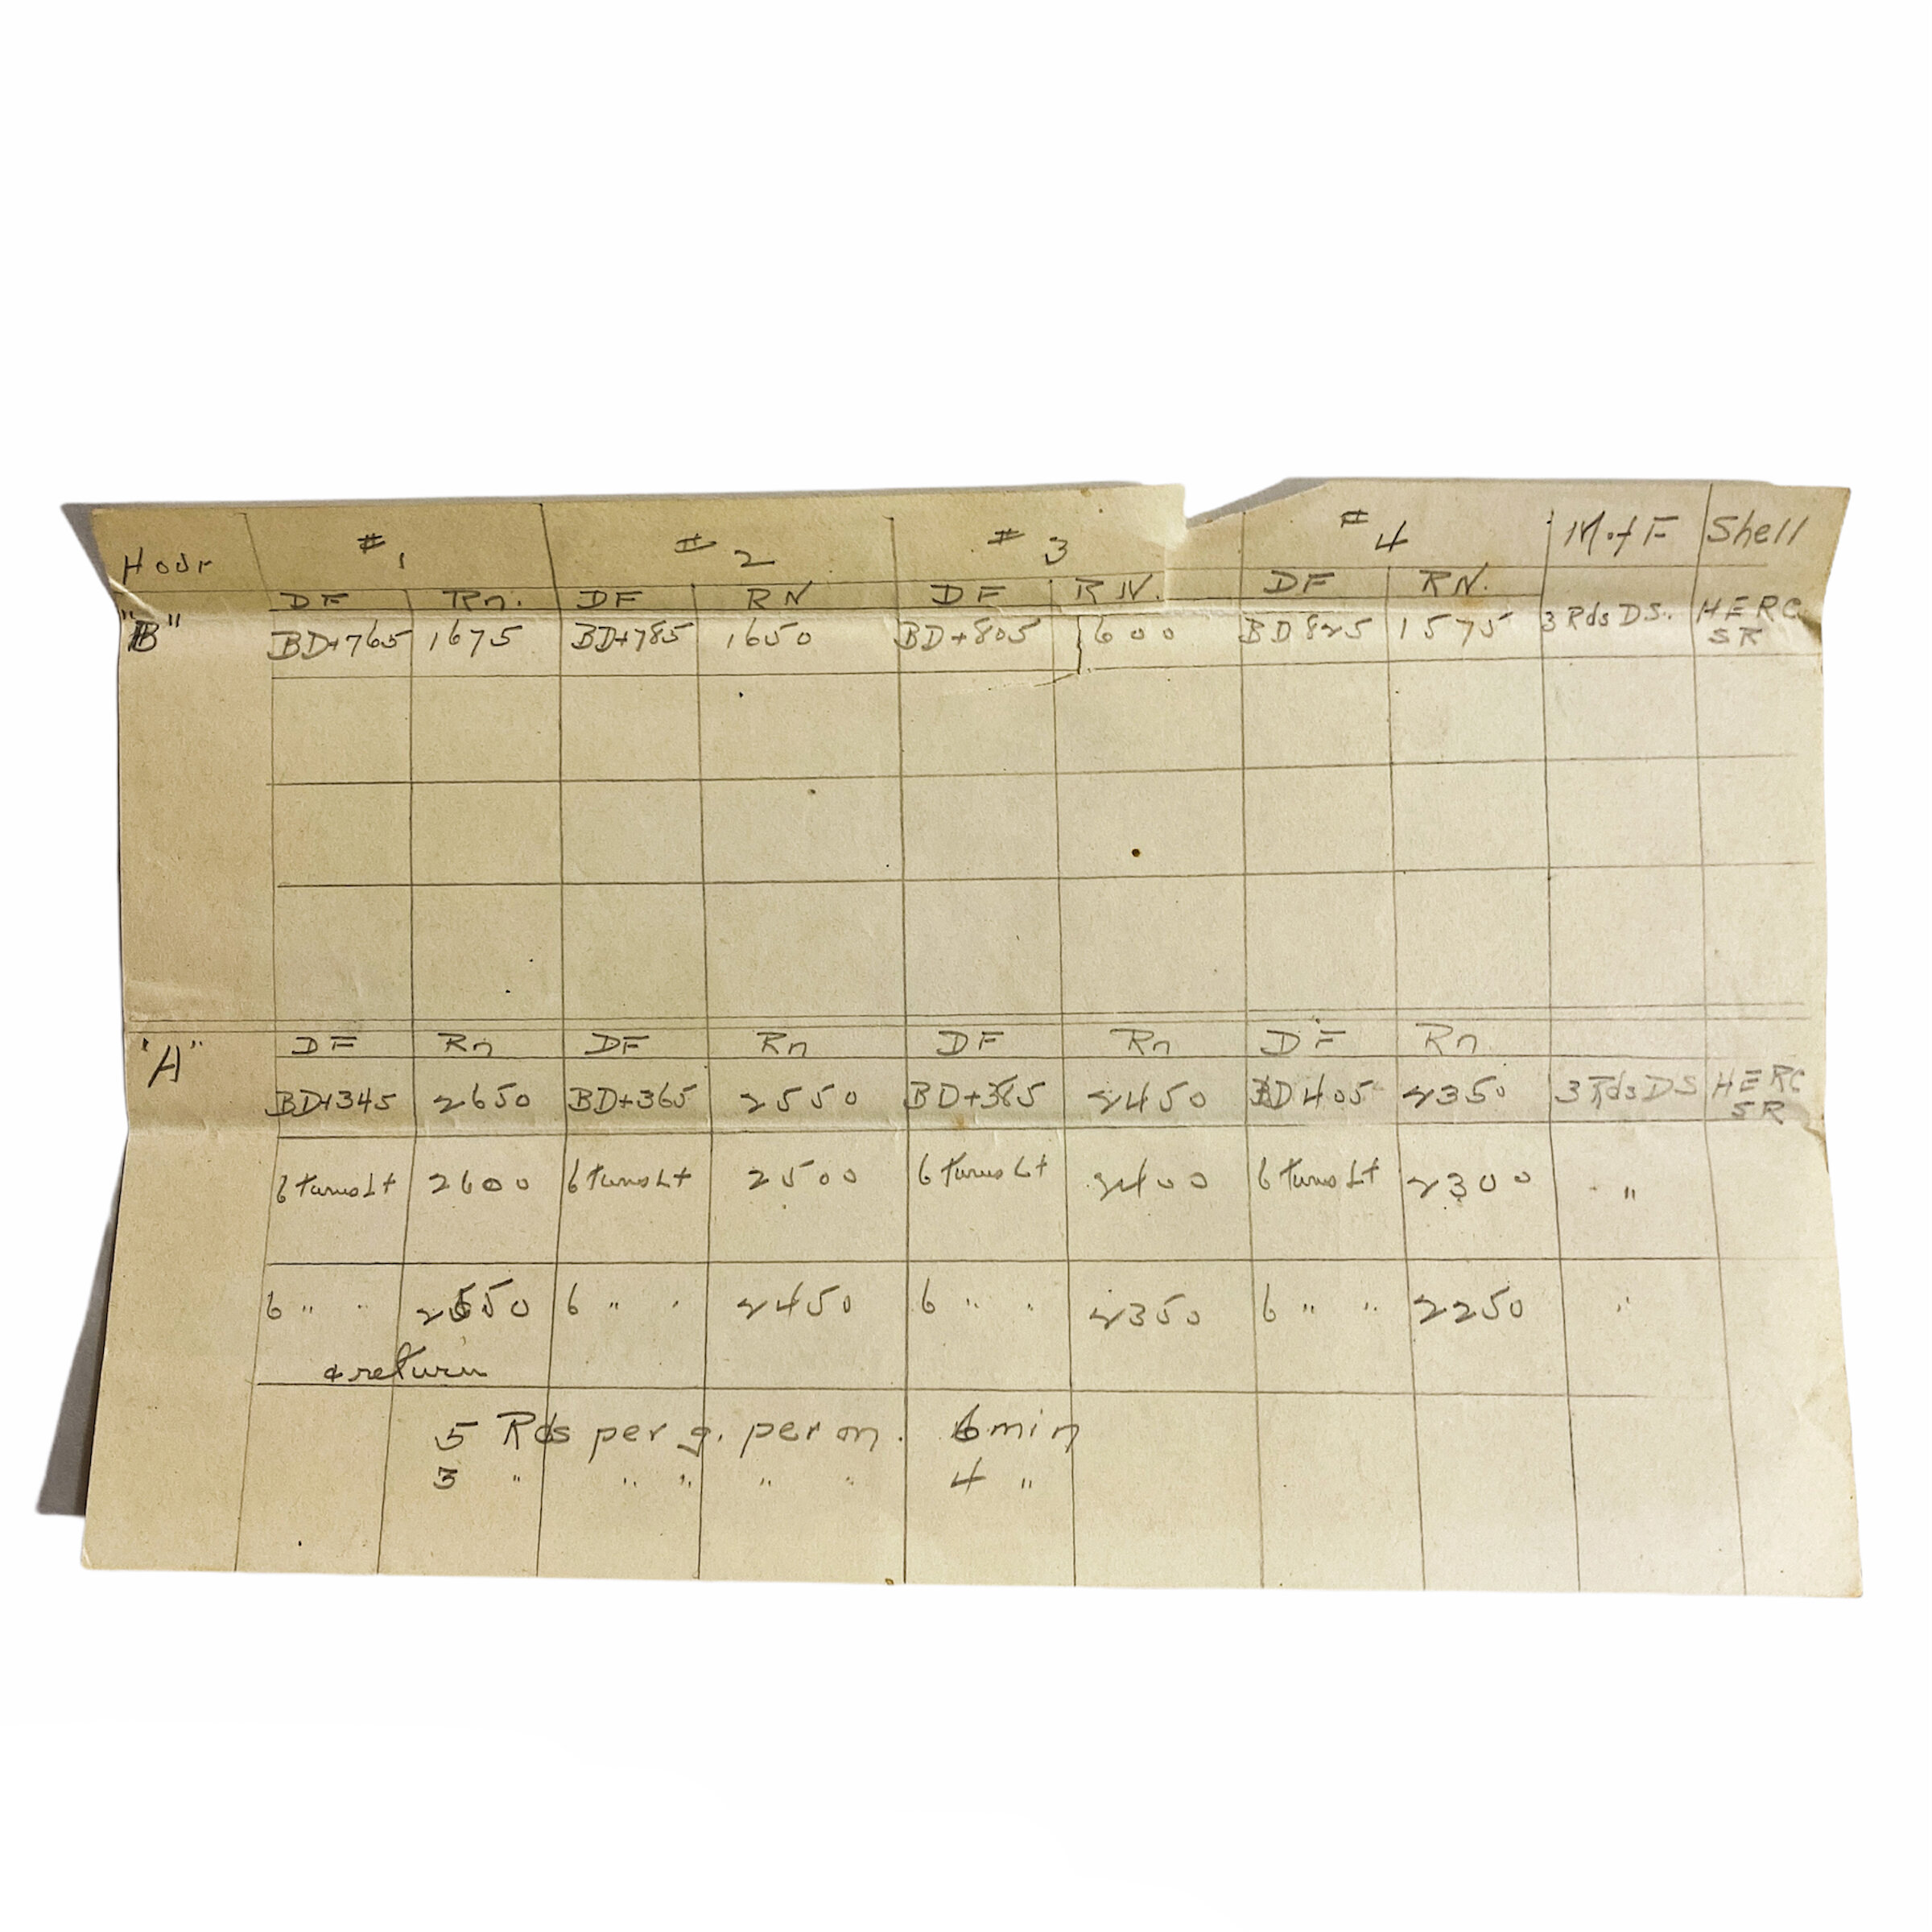 Hour #1 #2 #3 #4 M. of F Shell
DF Rn. DF RN DF RN. DF RN.
"B" BD+765 1675 BD+785 1650 BD+805 1600 BD 825 1575 3 Rds DS. HE RC
SR
"A" DF Rn DF Rn DF Rn DF Rn
BD+345 2650 BD+365 2550 BD+385 2450 BD 405 2350 3 Rds DS HE RC
SR
6 turns Lt 2600 6 turns Lt 2500 6 turns Lt 2400 6 turns Lt 2300 "
6 " " 2550 6 " " 2450 6 " " 2350 6 " " 2250 "
& return
5 Rds per g. per m. 6 min
3 " " " " " 4 "